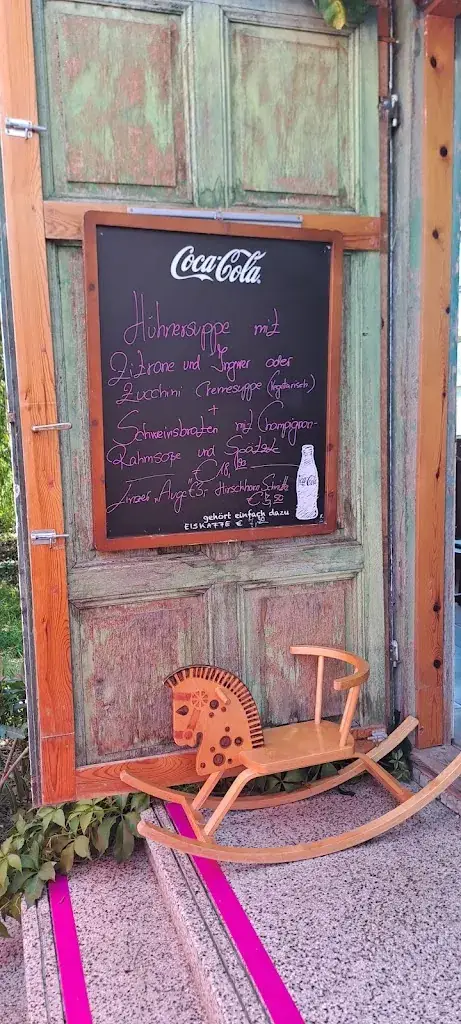 Coca-Cola
Hühnersuppe mit
Zitrone und Ingwer oder
Zucchini Cremesuppe (Vegetarisch)
+
Schweinsbraten mit Champignon-
Rahmsoße und Spätzle
€ 18,90
Linzer "Auge" € 3,- Hirschhorn Schnitte
€ 3,50
gehört einfach dazu
EISKAFFE €